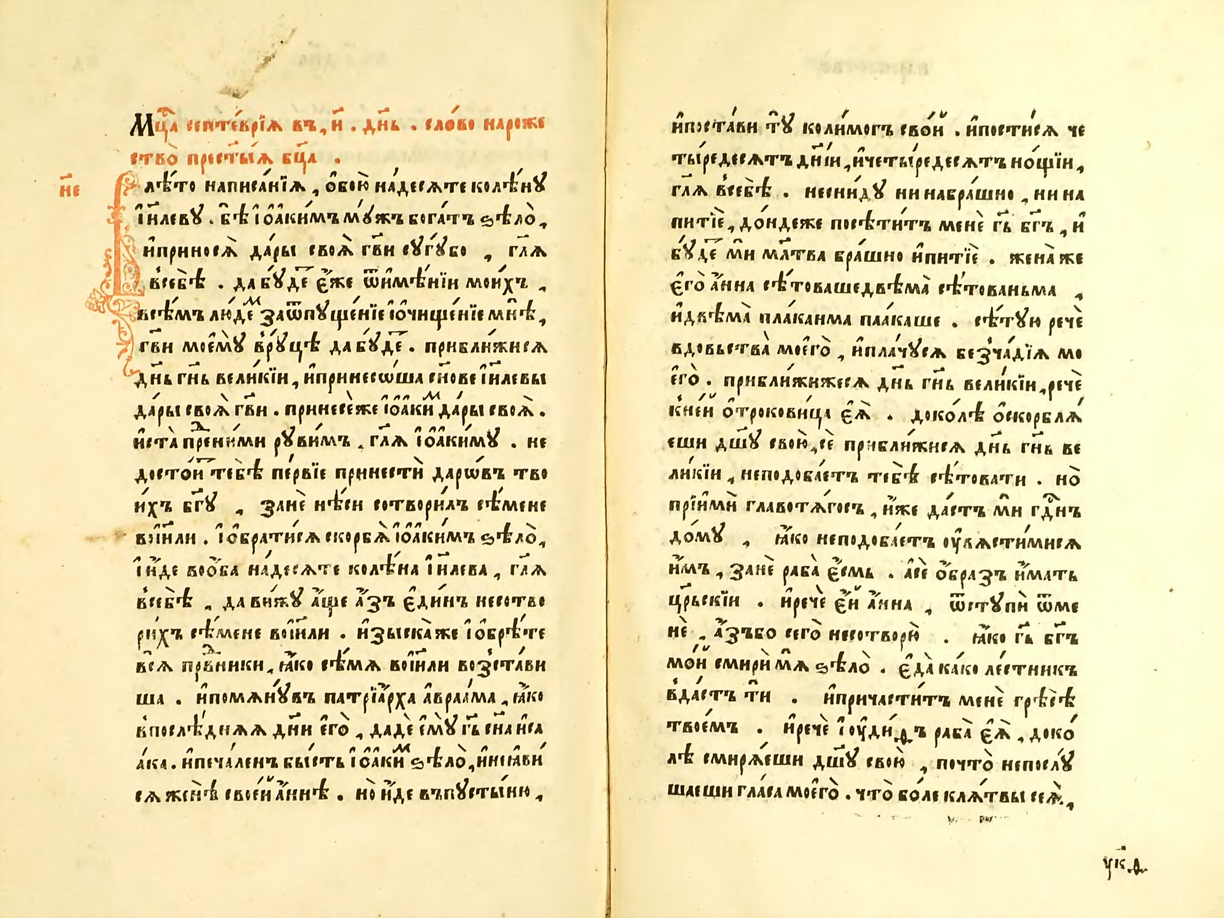 Мц҃а септе́врїѧ въ, и҃ . дн҃ь . сло́во нароже
ство̀ прест҃ыѧ бц҃а .
н҃е
Влѣ́то написанїѧ , ѻ҆бою на́десѧте колѣ́нꙋ
і҆и҃левꙋ . бѣ̀ і҆ѡ҆аки́мъ мꙋ́жъ бога́тъ ѕѣло̀,
и҆приносѧ̀ да́ры своѧ̀ гв҃и сꙋгꙋбо , гл҃ѧ
всебѣ̀ . да бꙋ́де є҆́же ѿи҆мѣ́нїи мои́хъ ,
всѣ́мъ лю́демъ заѿпꙋще́нїе і҆ѡ҆чище́нїе мнѣ̀,
гв҃и моемꙋ̀ врꙋцѣ̀ да бꙋ́де . прибли́жисѧ
дн҃ь гн҃ь вели́кїи, и҆принесѡ́ша сн҃ове і҆и҃левы
да́ры своѧ̀ гв҃и . принесе́же і҆ѡ҆аки́м да́ры своѧ̀ .
и҆ста̀ пред̾ни́ми рꙋви́мъ . гл҃ѧ і҆ѡ҆аки́мꙋ . не
досто́и тебѣ̀ пе́рвїе принестѝ даро́въ тво
и́хъ бг҃ꙋ , занѐ нѣ́си сотвори́лъ сѣ́мене
вои҃ли . і҆ѡ҆брати́сѧ скорбѧ̀ і҆ѡ҆аки́мъ ѕѣло̀,
і҆и҆́де воѻ҆́ба на́десѧте колѣ́на і҆и҃лева , гл҃ѧ
всебѣ̀ , да ви́жꙋ а҆́ще а҆́зъ є҆ди́нъ несотво
ри́хъ сѣ́мене вои҃ли . и҆зыска́же і҆ѡ҆брѣ́те
всѧ̀ пра́вники, ꙗ҆́ко сѣ́мѧ вои҃ли возста́ви
ша . и҆помѧнꙋвъ патрїа́рха а҆враа́ма , ꙗ҆́ко
впослѣ́днѧѧ дн҃и є҆го̀ , дадѐ є҆мꙋ̀ гь҃ сн҃а иса
а́ка . и҆печа́ленъ бы́сть і҆ѡ҆аки́м ѕѣло̀, и҆неѧви
сѧ женѣ̀ свое́и а҆́ннѣ . но и҆́де въпꙋсты́ню ,
и҆поста́ви тꙋ̀ коли́могъ сво́й . и҆пости́сѧ че
ты́редесѧтъ дн҃їи , и҆четы́редесѧтъ но́щїи ,
гл҃ѧ всебѣ̀ . неснидꙋ ни набра́шно , ни на
питїѐ , до́ндеже посѣ́титъ менѐ гь҃ бг҃ъ , и҆
бꙋ́де ми мл҃тва бра́шно и҆питїѐ . жена же
є҆го̀ а҆́нна сѣ́товаше двѣма̀ сѣ́тованьма ,
и҆двѣма̀ пла́канма пла́каше . сѣ́тꙋю речѐ
вдовьства̀ моего̀ , и҆пла́чꙋсѧ безча́дїѧ мо
его̀ . прибли́жижесѧ дн҃ь гн҃ь вели́кїи , речѐ
кне́й ѻ҆трокови́ца є҆ѧ̀ . доко́лѣ ѡ҆скорблѧ́
еши дш҃ꙋ свою̀ , сѐ прибли́жисѧ дн҃ь гн҃ь ве
ли́кїи , неподоба́етъ тебѣ̀ сѣ́товати . но̀
прїимѝ главотѧ́госъ , и҆́же да́стъ ми гд҃нъ
до́мꙋ , ꙗ҆́ко неподоба́етъ ᲂу҆вѧсти́мисѧ
и҆́мъ , занѐ раба̀ є҆́смь . а҆сѐ о҆́бразъ и҆́мать
цр҃ьскїи . и҆речѐ є҆́й а҆́нна , ѿстꙋпѝ ѿме
нѐ , а҆́зъбо сего̀ несотворю̀ . ꙗ҆́ко гь҃ бг҃ъ
мо́й смирѝ мѧ ѕѣло̀ . є҆да̀ ка́ко ле́стникъ
вда́стъ ти . и҆причасти́тъ менѐ грѣсѣ̀
твое́мъ . и҆речѐ і҆ᲂуди́ѳъ раба̀ є҆ѧ̀ , доко́
лѣ смирѧ́еши дш҃ꙋ свою̀ , почто̀ непослꙋ́
шаеши гла́са моего̀ . что̀ бо́ле клѧ́твы сеѧ̀ ,